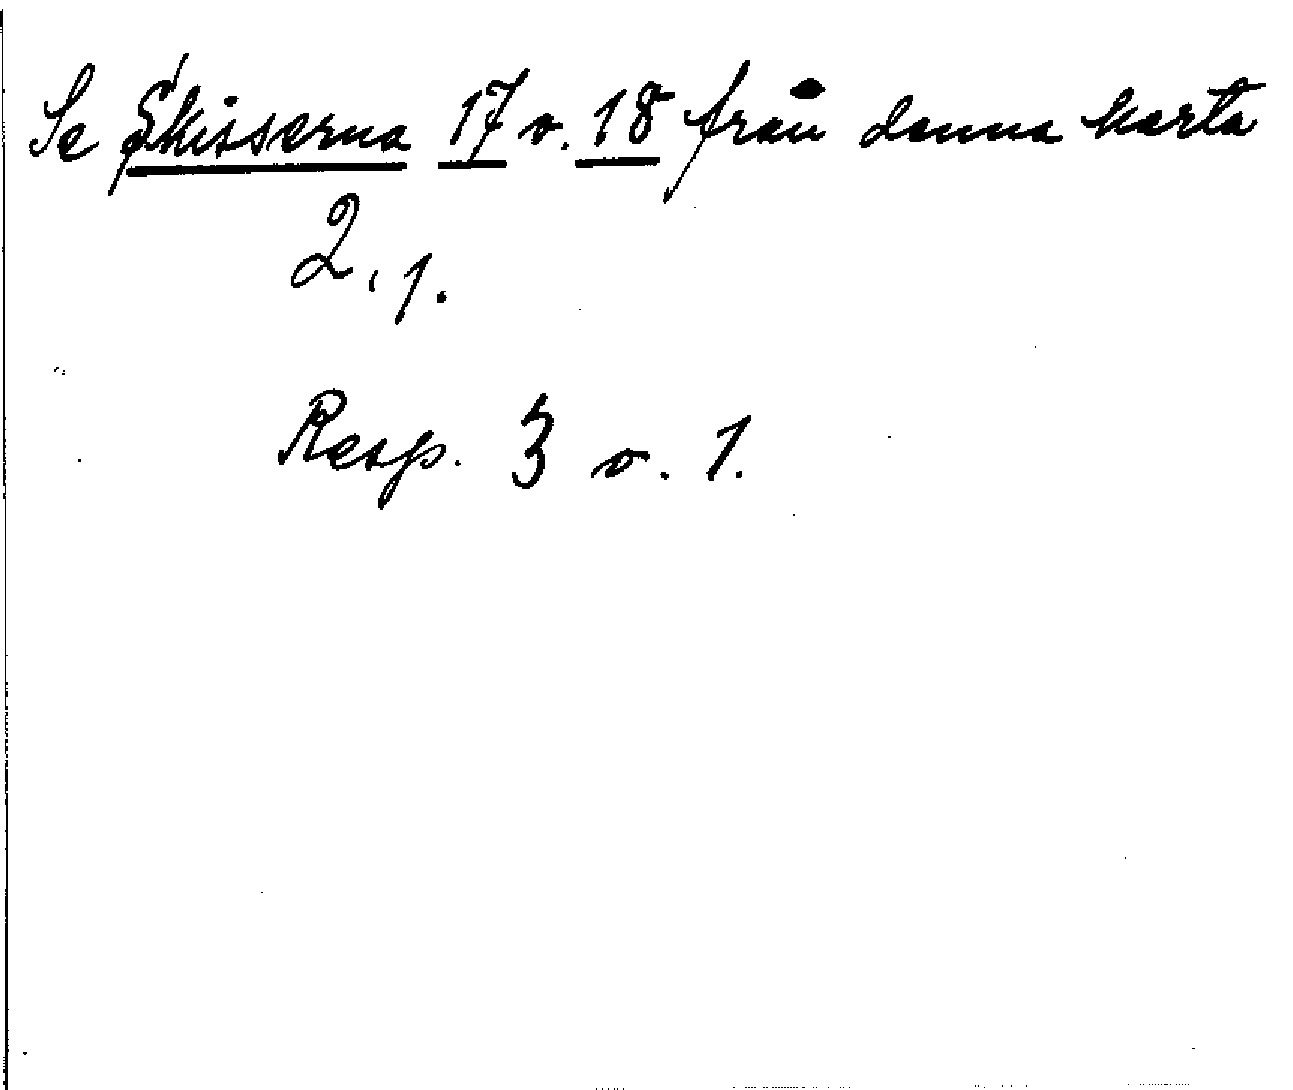 Se Skisserna 17 o. 18 från denna karta
2. 1.
Resp. 3 o. 1.